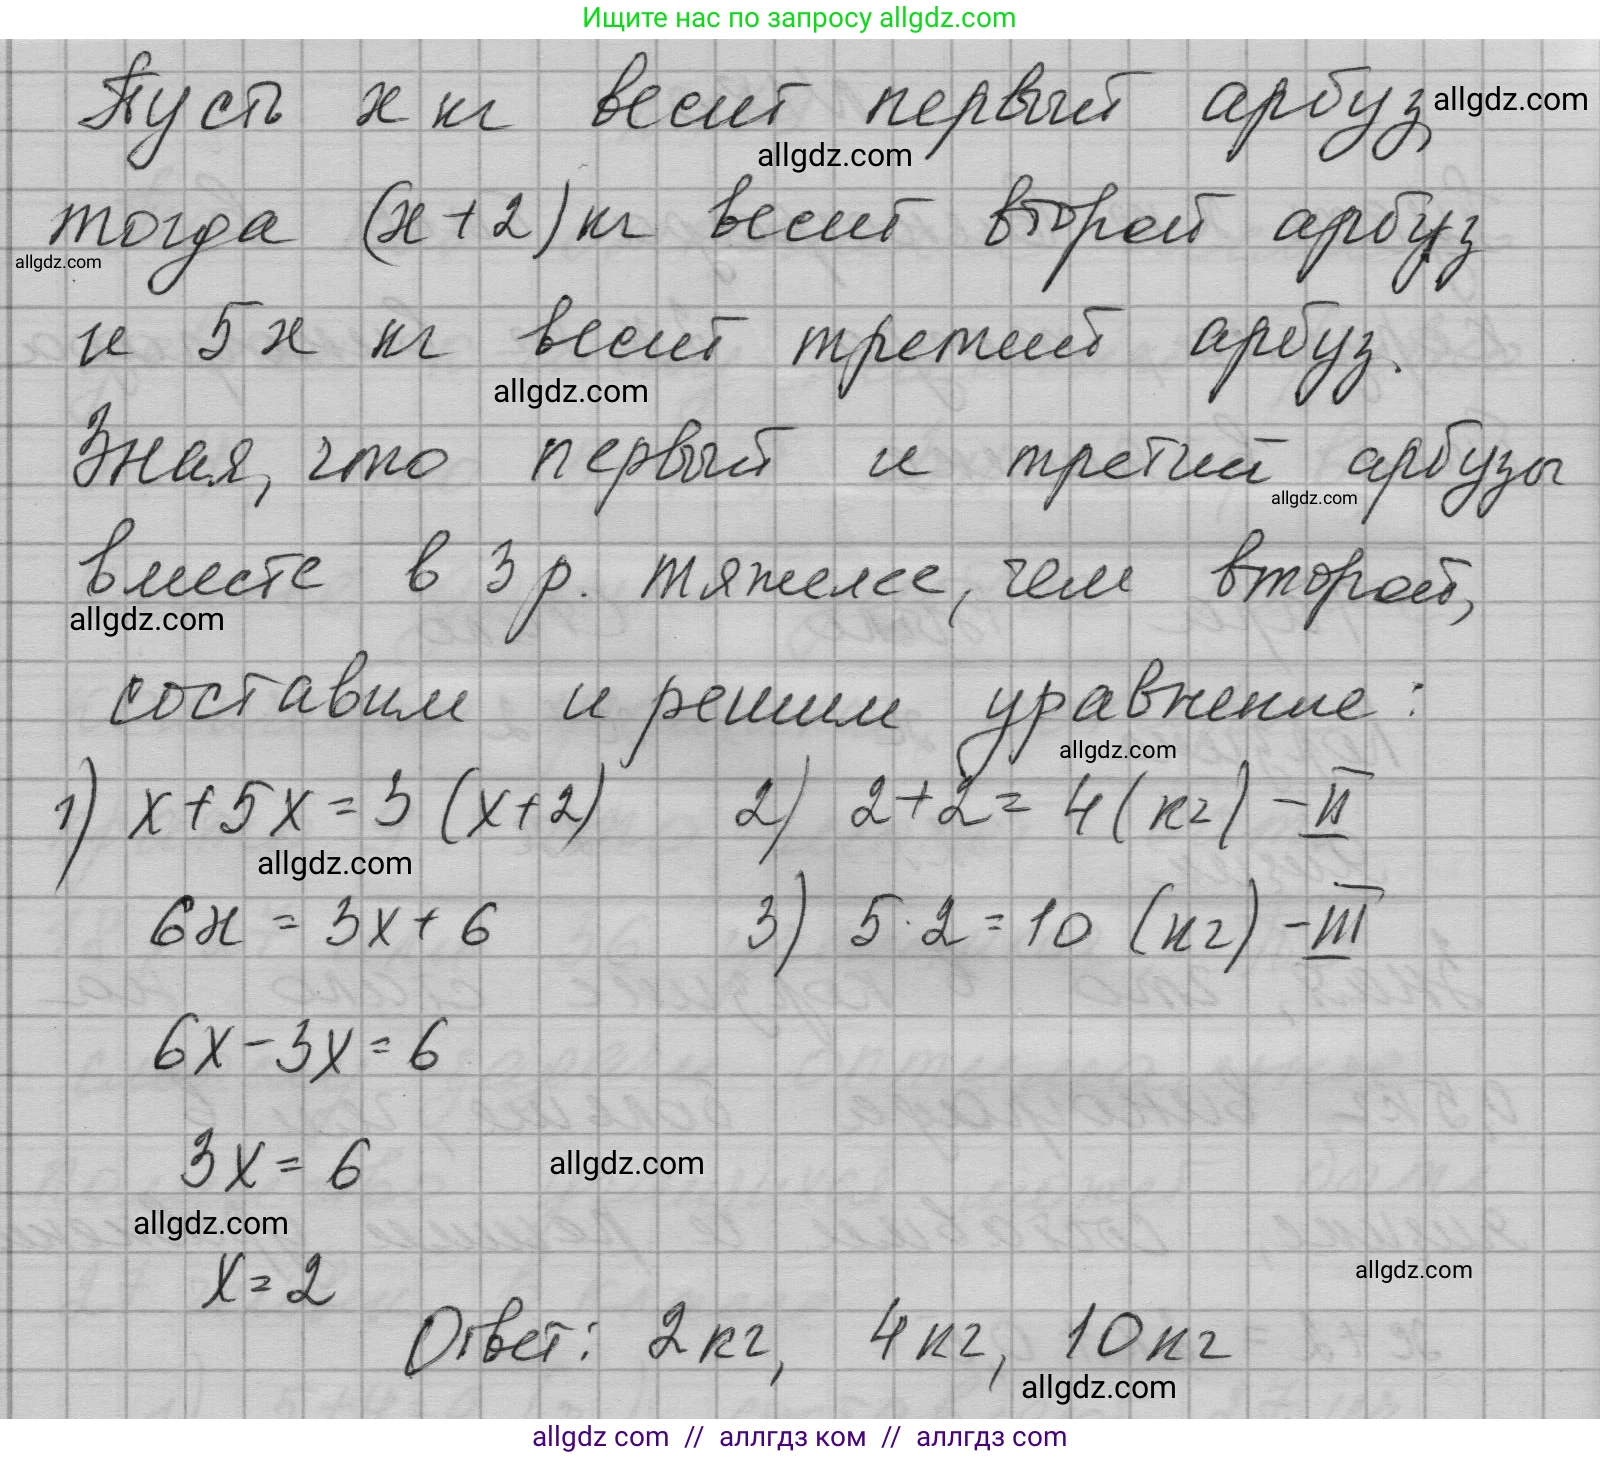 Ищите нас по запросу allgdz.com
Пусть х кг весит первый арбуз, allgdz.com
allgdz.com
тогда (х+2) кг весит второй арбуз
allgdz.com
и 5х кг весит третий арбуз.
allgdz.com
Зная, что первый и третий арбузы
allgdz.com
вместе в 3 р. тяжелее, чем второй,
allgdz.com
составим и решим уравнение:
allgdz.com
1) х+5х=3(х+2) 2) 2+2=4(кг) - II
allgdz.com
6х = 3х+6 3) 5·2=10 (кг) - III
6х-3х=6
3х=6
allgdz.com
allgdz.com
х=2
allgdz.com
Ответ: 2кг, 4кг, 10кг
allgdz.com
allgdz com // аллгдз ком // аллгдз com